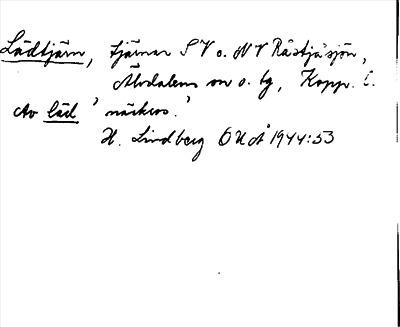 Lädtjärn, tjärnar SV o. NV Råstjäsjön,
Älvdalens sn o. tg, Kopp. l.
Av läd 'näckros.'
H. Lindberg OUÅ 1944:53